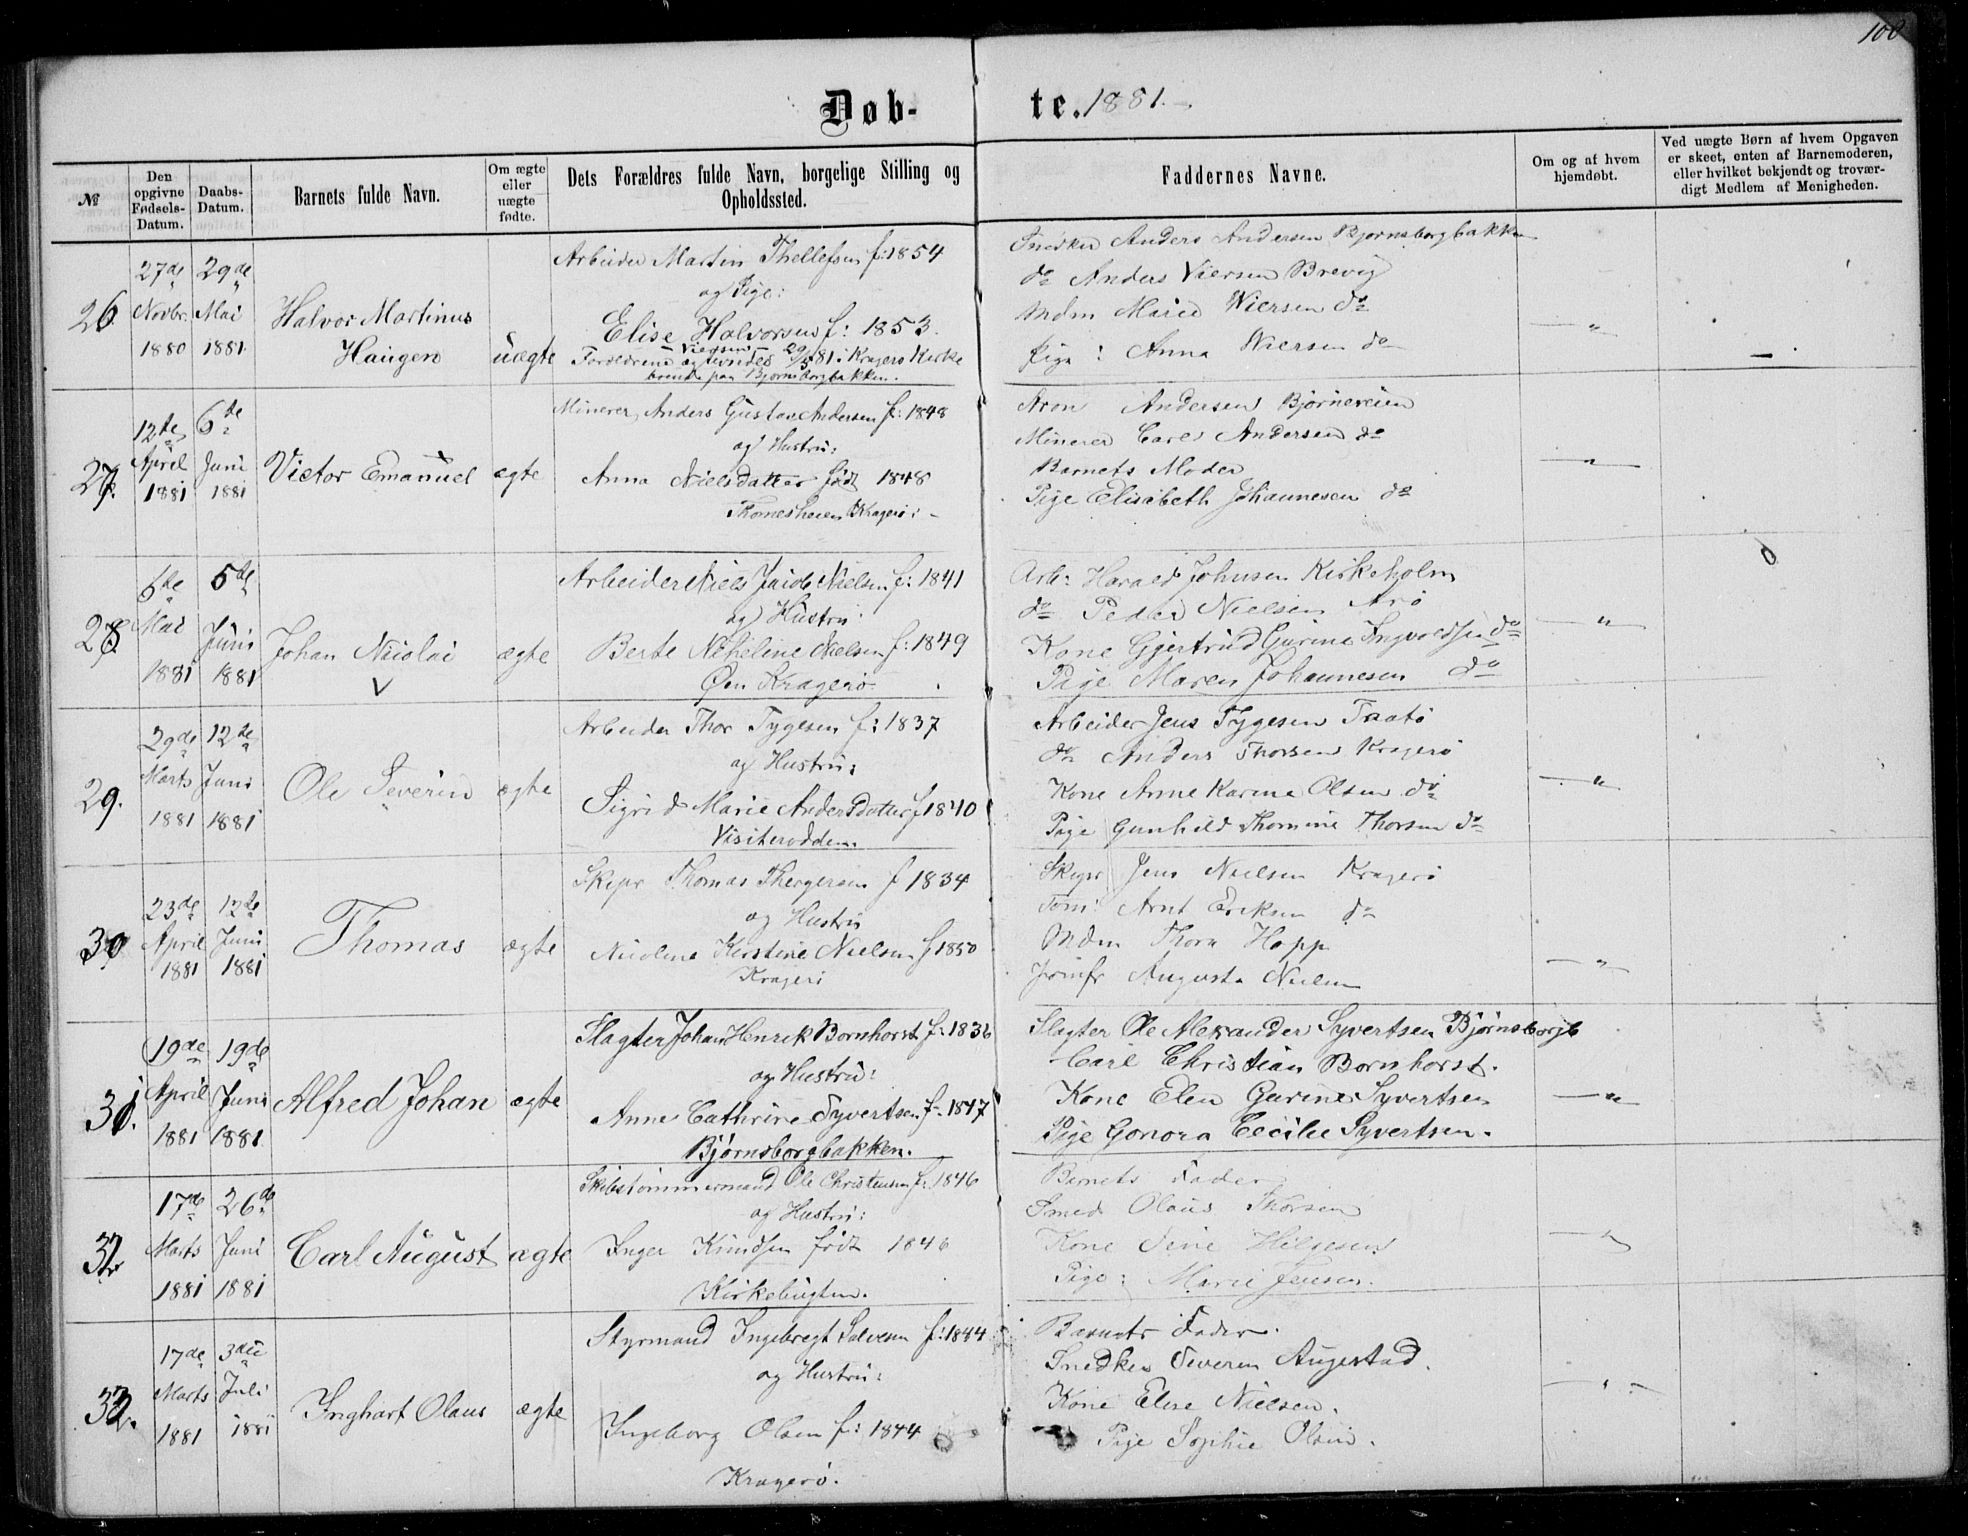 100
Døb- te. 1881.
№
Den opgivne Fødsels-Datum.
Daabs-Datum.
Barnets fulde Navn.
Om ægte eller uægte fødte.
Dets Forældres fulde Navn, borgelige Stilling og Opholdssted.
Faddernes Navne.
Om og af hvem hjemdøbt.
Ved uægte Børn af hvem Opgaven er skeet, enten af Barnemoderen, eller hvilket bekjendt og troværdigt Medlem af Menigheden.
26.
27de Novbr. 1880
29de Mai 1881
Halvor Martinus
Haugen
uægte
Arbeider Martin Thellefsen f: 1854
og Pige:
Elise Halvorsen f: 1853.
Viersen
Forældrene ægteviedes 29/5 81 i Kragerø Kirke
boende paa Bjørnsborgbakken.
Snedker Anders Andersen Bjørnsborgbakken
do Anders Viersen Brevig
Mdm Marie Wiersen do
Pige: Anna Wiersen do
— " —
27.
12te April 1881
6te Juni 1881
Victor Emanuel
ægte
Minerer Anders Gustav Andersen f: 1848
og Hustru:
Anna Nielsdatter født 1848
Thomesheien Kragerø: -
Aron Andersen Bjørneveien
Minerer Carl Andersen do
Barnets Moder
Pige Elisabeth Johannesen do
— " —
28
6te Mai 1881
5te Juni 1881
Johan Nicolai
ægte
Arbeider Niels Jacob Nielsen f: 1841
og Hustru
Berte Nilseline Nielsen f: 1849
Øen Kragerø
Arb: Harald Johnsen Kirkeholm
do Peder Nielsen Arø
Kone Gjertrud Gurine Ingvoldsen do
Pige Maren Johannesen do
— " —
29.
29de Marts 1881
12te Juni 1881
Ole Severin
ægte
Arbeider Thor Tygesen f: 1837
og Hustru:
Sigrid Marie Andersdatter f 1840
Visiterodden.
Arbeider Jens Tygesen Taatø
do Anders Thorsen Kragerø
Kone Anne Karine Olsen do
Pige Gunhild Thomine Thorsen do
— " —
30
23de April 1881
12te Juni 1881
Thomas
ægte
Skipr Thomas Thergersen f 1834
og Hustru
Nicoline Kirstine Nielsen f 1850
Kragerø
Skipr Jens Nielsen Kragerø
Tøm: Arnt Eriksen do
Mdm Thora Hopp
Jomfr Augusta Nielsen
— " —
31.
19de April 1881
19de Juni 1881
Alfred Johan
ægte
Slagter Johan Henrik Bornhorst f: 1836
og Hustru:
Anne Cathrine Syvertsen f- 1847
Bjørnsborgbakken.
Slagter Ole Alexander Syvertsen Bjørnsborgb
Carl Christian Bornhorst.
Kone Elen Gurine Syvertsen
Pige Gonora Cecilie Syvertsen.
— " —
32
17de Marts 1881
26de Juni 1881
Carl August
ægte
Skibstømmermand Ole Christensen f: 1846
og Hustru:
Inger Knudsen født 1846
Kirkebugten.
Barnets Fader
Smed Olaus Thorsen
Kone Sine Helgesen
Pige: Marie Jensen.
— " —
33.
17de Marts 1881
3die Juli 1881
Inghart Olaus
ægte
Styrmand Ingebregt Salvesen f: 1844
og Hustru:
Ingeborg Olsen f: 1844
Kragerø.
Barnets Fader.
Snedker Severin Augestad.
Kone Elise Nielsen.
Pige Sophie Olsen.
— " —